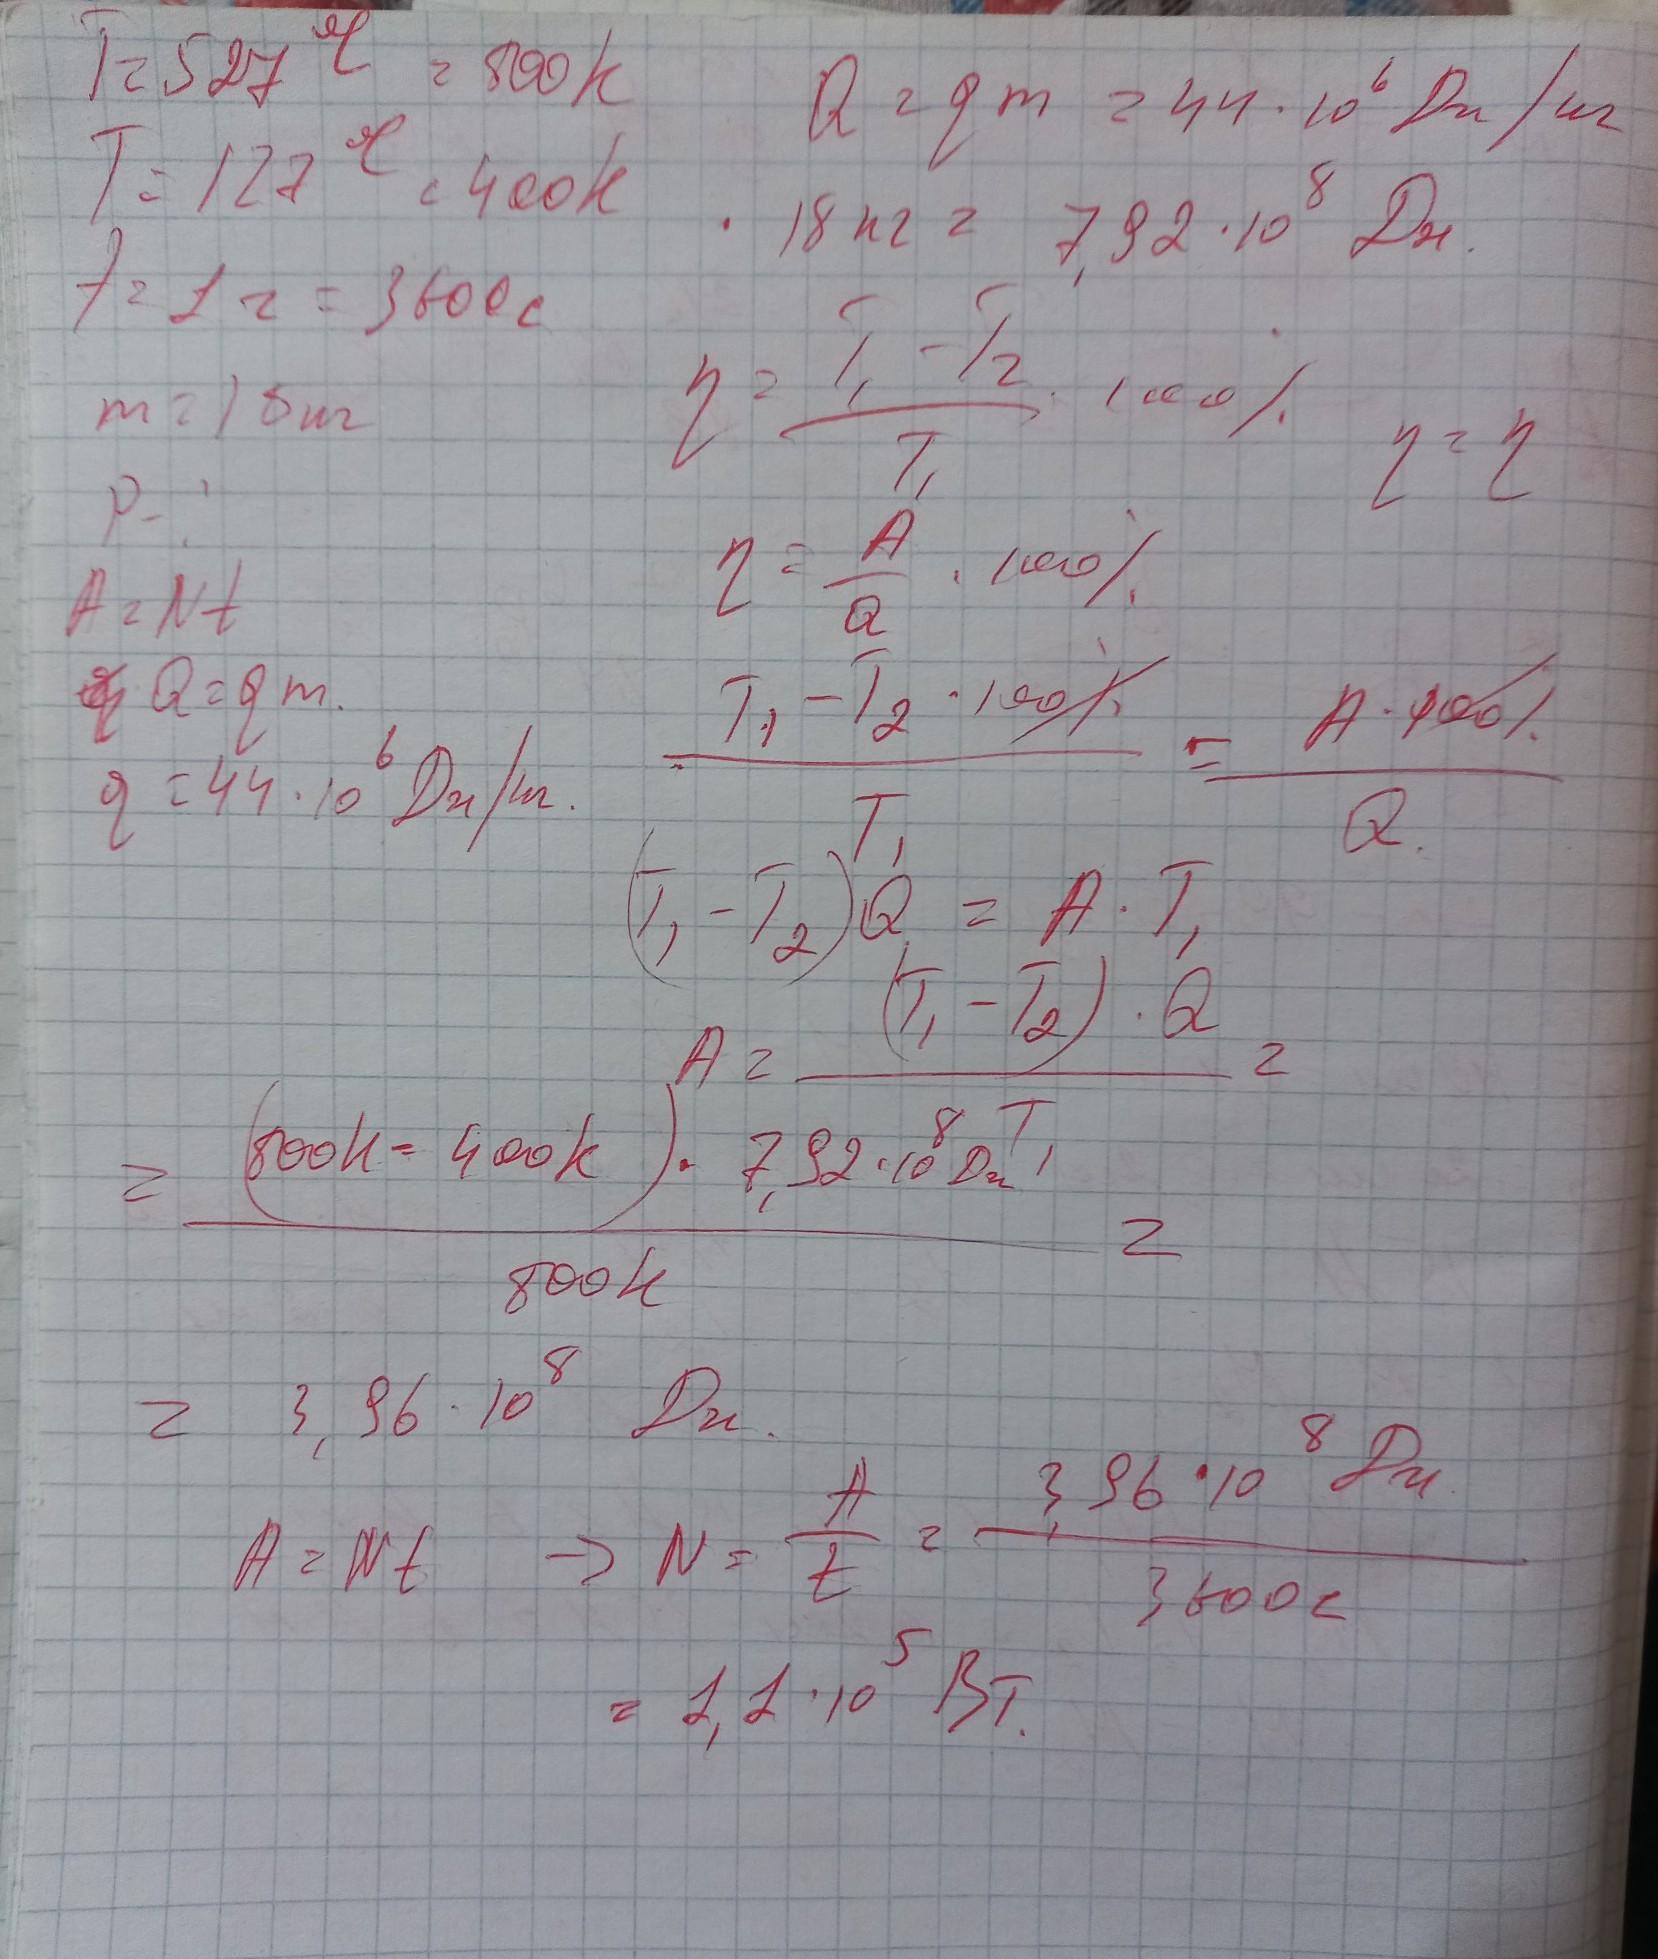 T=527°C = 800K
T=127°C = 400K
t=1ч=3600с
m=18кг
P-?
A=Nt
Q=qm.
q=44·10⁶ Дж/кг.
Q=qm=44·10⁶ Дж/кг
· 18кг = 7,92·10⁸ Дж.
η = (T₁-T₂)/T₁ · 100%
η=η
η = A/Q · 100%
(T₁-T₂ · 100%)/T₁ = (A·100%)/Q.
(T₁-T₂)Q = A·T₁
A = ((T₁-T₂)·Q)/T₁ =
= ((800K-400K)·7,92·10⁸Дж)/800K =
= 3,96·10⁸ Дж.
A=Nt → N = A/t = (3,96·10⁸ Дж)/3600с
= 1,1·10⁵ Вт.